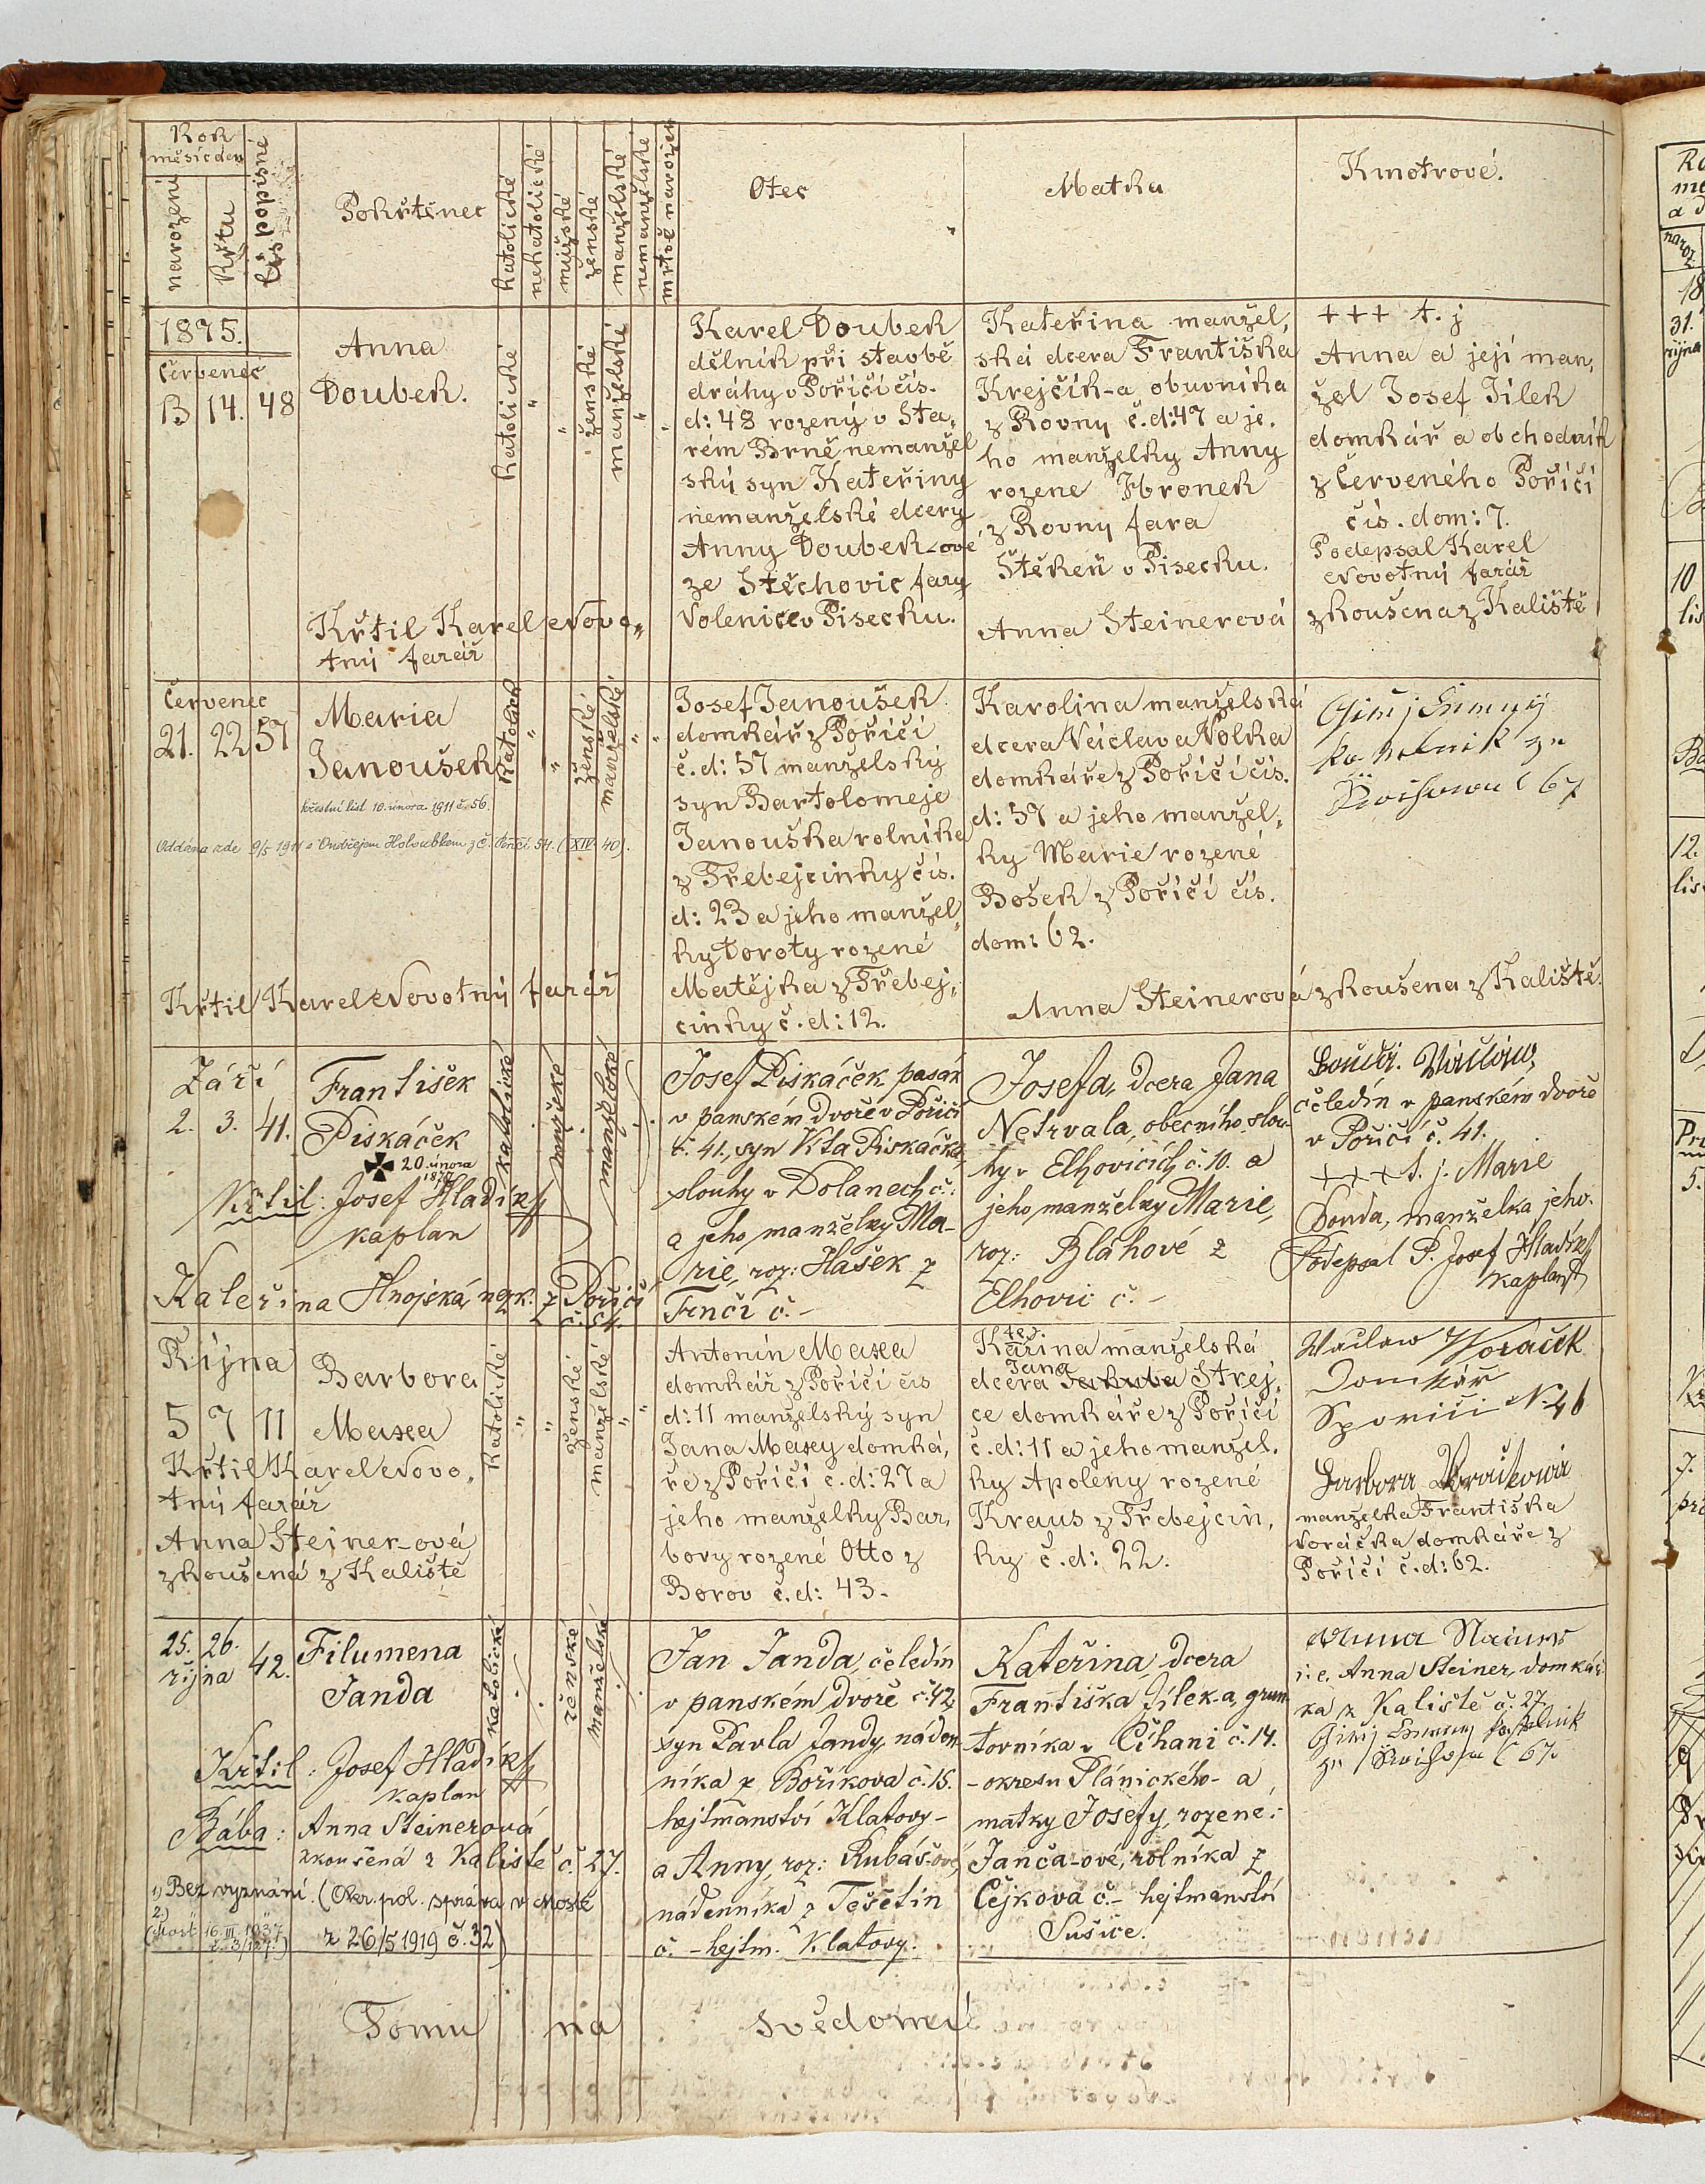 Rok
měsíc den
narození
Křtu
čís popisné
Pokřtěnec
katolické
nekatolické
mužské
ženské
manželské
nemanželské
mrtvě narozen
Otec
Matka
Kmotrové.
1875.
Červenec
13 14. 48
Anna
Doubek.
katolické
"
"
ženské
manželské
"
"
Křtil Karel Novo„
tný farář
Karel Doubek
dělník při stavbě
dráhy v Poříčí čís.
d: 48 rozený v Sta„
rém Brně nemanžel
ský syn Kateřiny
nemanželské dcery
Anny Doubek-ové
ze Stěchovic fary
Volenice v Písecku.
Kateřina manžel„
ská dcera Františka
Krejčík-a obuvníka
z Rovny č.d:47 a je„
ho manželky Anny
rozene Hronek
z Rovny fara
Štěkeň v Pisecku.
Anna Steinerová
+++ t. j
Anna a její man„
žel Josef Jílek
domkář a obchodník
z Červeného Poříčí
čís. dom: 7.
Podepsal Karel
Novotný farář
zkoušena z Kaliště
Červenec
21. 22 57
Maria
Janoušek
křestní list 10. února 1911 č. 56.
Oddána zde 9/5 1911 s Ondřejem Holoubkem z Č. Poříčí 54. (XIV. 40).
Katolick
"
"
ženské
manželské
"
"
Křtil Karel Novotný farář
Josef Janoušek
domkář z Poříčí
č. d: 57 manželský
syn Bartolomeje
Janouška rolníka
z Třebejcinky čís.
d: 23 a jeho manžel„
ky Doroty rozené
Matějka z Třebej„
cinky č. d: 12.
Karolina manželská
dcera Václava Volka
domkáře z Poříčí čís.
d: 57 a jeho manžel„
ky Marie rozené
Bošek z Poříčí čís.
dom: 62.
Anna Steinerová zkoušena z Kaliště.
67
Září
2. 3. 41.
František
Piskáček
✠ 20. února
Křtil: Josef Hladík
kaplan
Kateřina Hnojská, nezk. z Poříčí
katolické
mužské
manželské
Josef Piskáček pasák
v panském dvoře v Poříčí
č. 41., syn Piskáčka,
slouhy v Dolanech č:
a jeho manželky Ma-
rie, roz: Hašek z
Trnčí č. -
Josefa, dcera Jana
Netrvala, obecního slou-
hy v Elhovicích č. 10. a
jeho manželky Marie,
roz: Bláhové z
Elhovic č. -
čeledín v panském dvoře
v Poříčí č. 41.
+++ t. j. Marie
Sonda, manželka jeho.
Podepsal P. Josef Hladík
kaplan
Října
5 7 11
Barbora
Maxa
Křtil Karel Novo„
tný farář
Anna Steiner-ová
zkoušená z Kaliště
Katolické
"
"
ženské
manželské
"
"
Antonín Maxa
domkář z Poříčí čis
d: 11 manželský syn
Jana Maxy domká„
ře z Poříčí č. d: 27 a
jeho manželky Bar„
bory rozené Otto z
Borov č. d: 43.
te.
Kařina manželská
Jana
dcera Jakuba Strej„
ce domkáře z Poříčí
č. d: 11 a jeho manžel„
ky Apoleny rozené
Kraus z Třebejcin„
ky č. d: 22.
Waclaw Woráček
Domkář
Sporiči N. 46
Barbora Voráčková
manželka Františka
Voráčka domkáře z
Poříčí č. d: 62.
25. 26.
října 42.
Filumena
Janda
katolické
ženské
manželské
Křtil: Josef Hladík
kaplan
Bába: Anna Steinerová
zkoušená z Kaliště č. 27.
1) Bez vyznání. (Okr. pol. správa v Mostě
z 26/5 1919 č. 32)
2)
(Most 16. III. 1937
Jan Janda, čeledín
v panském dvoře č. 42,
syn Pavla Jandy, náden-
níka z Boříkova č. 15.
hejtmanství Klatovy-
a Anny, roz: Rubáš-ové,
nádenníka z Tešetin
č. - hejtm. Klatovy.
Kateřina, dcera
Františka Jílek-a, grun
tovníka v Číhani č. 14.
- okresu Plánického - a
matky Josefy, rozené:
Janča-ové, rolníka z
Čejkova č. - hejtmanství
Sušice.
Anna
i. e. Anna Steiner, domkář-
ka z Kaliště č. 27
67.
Tomu na svědomí